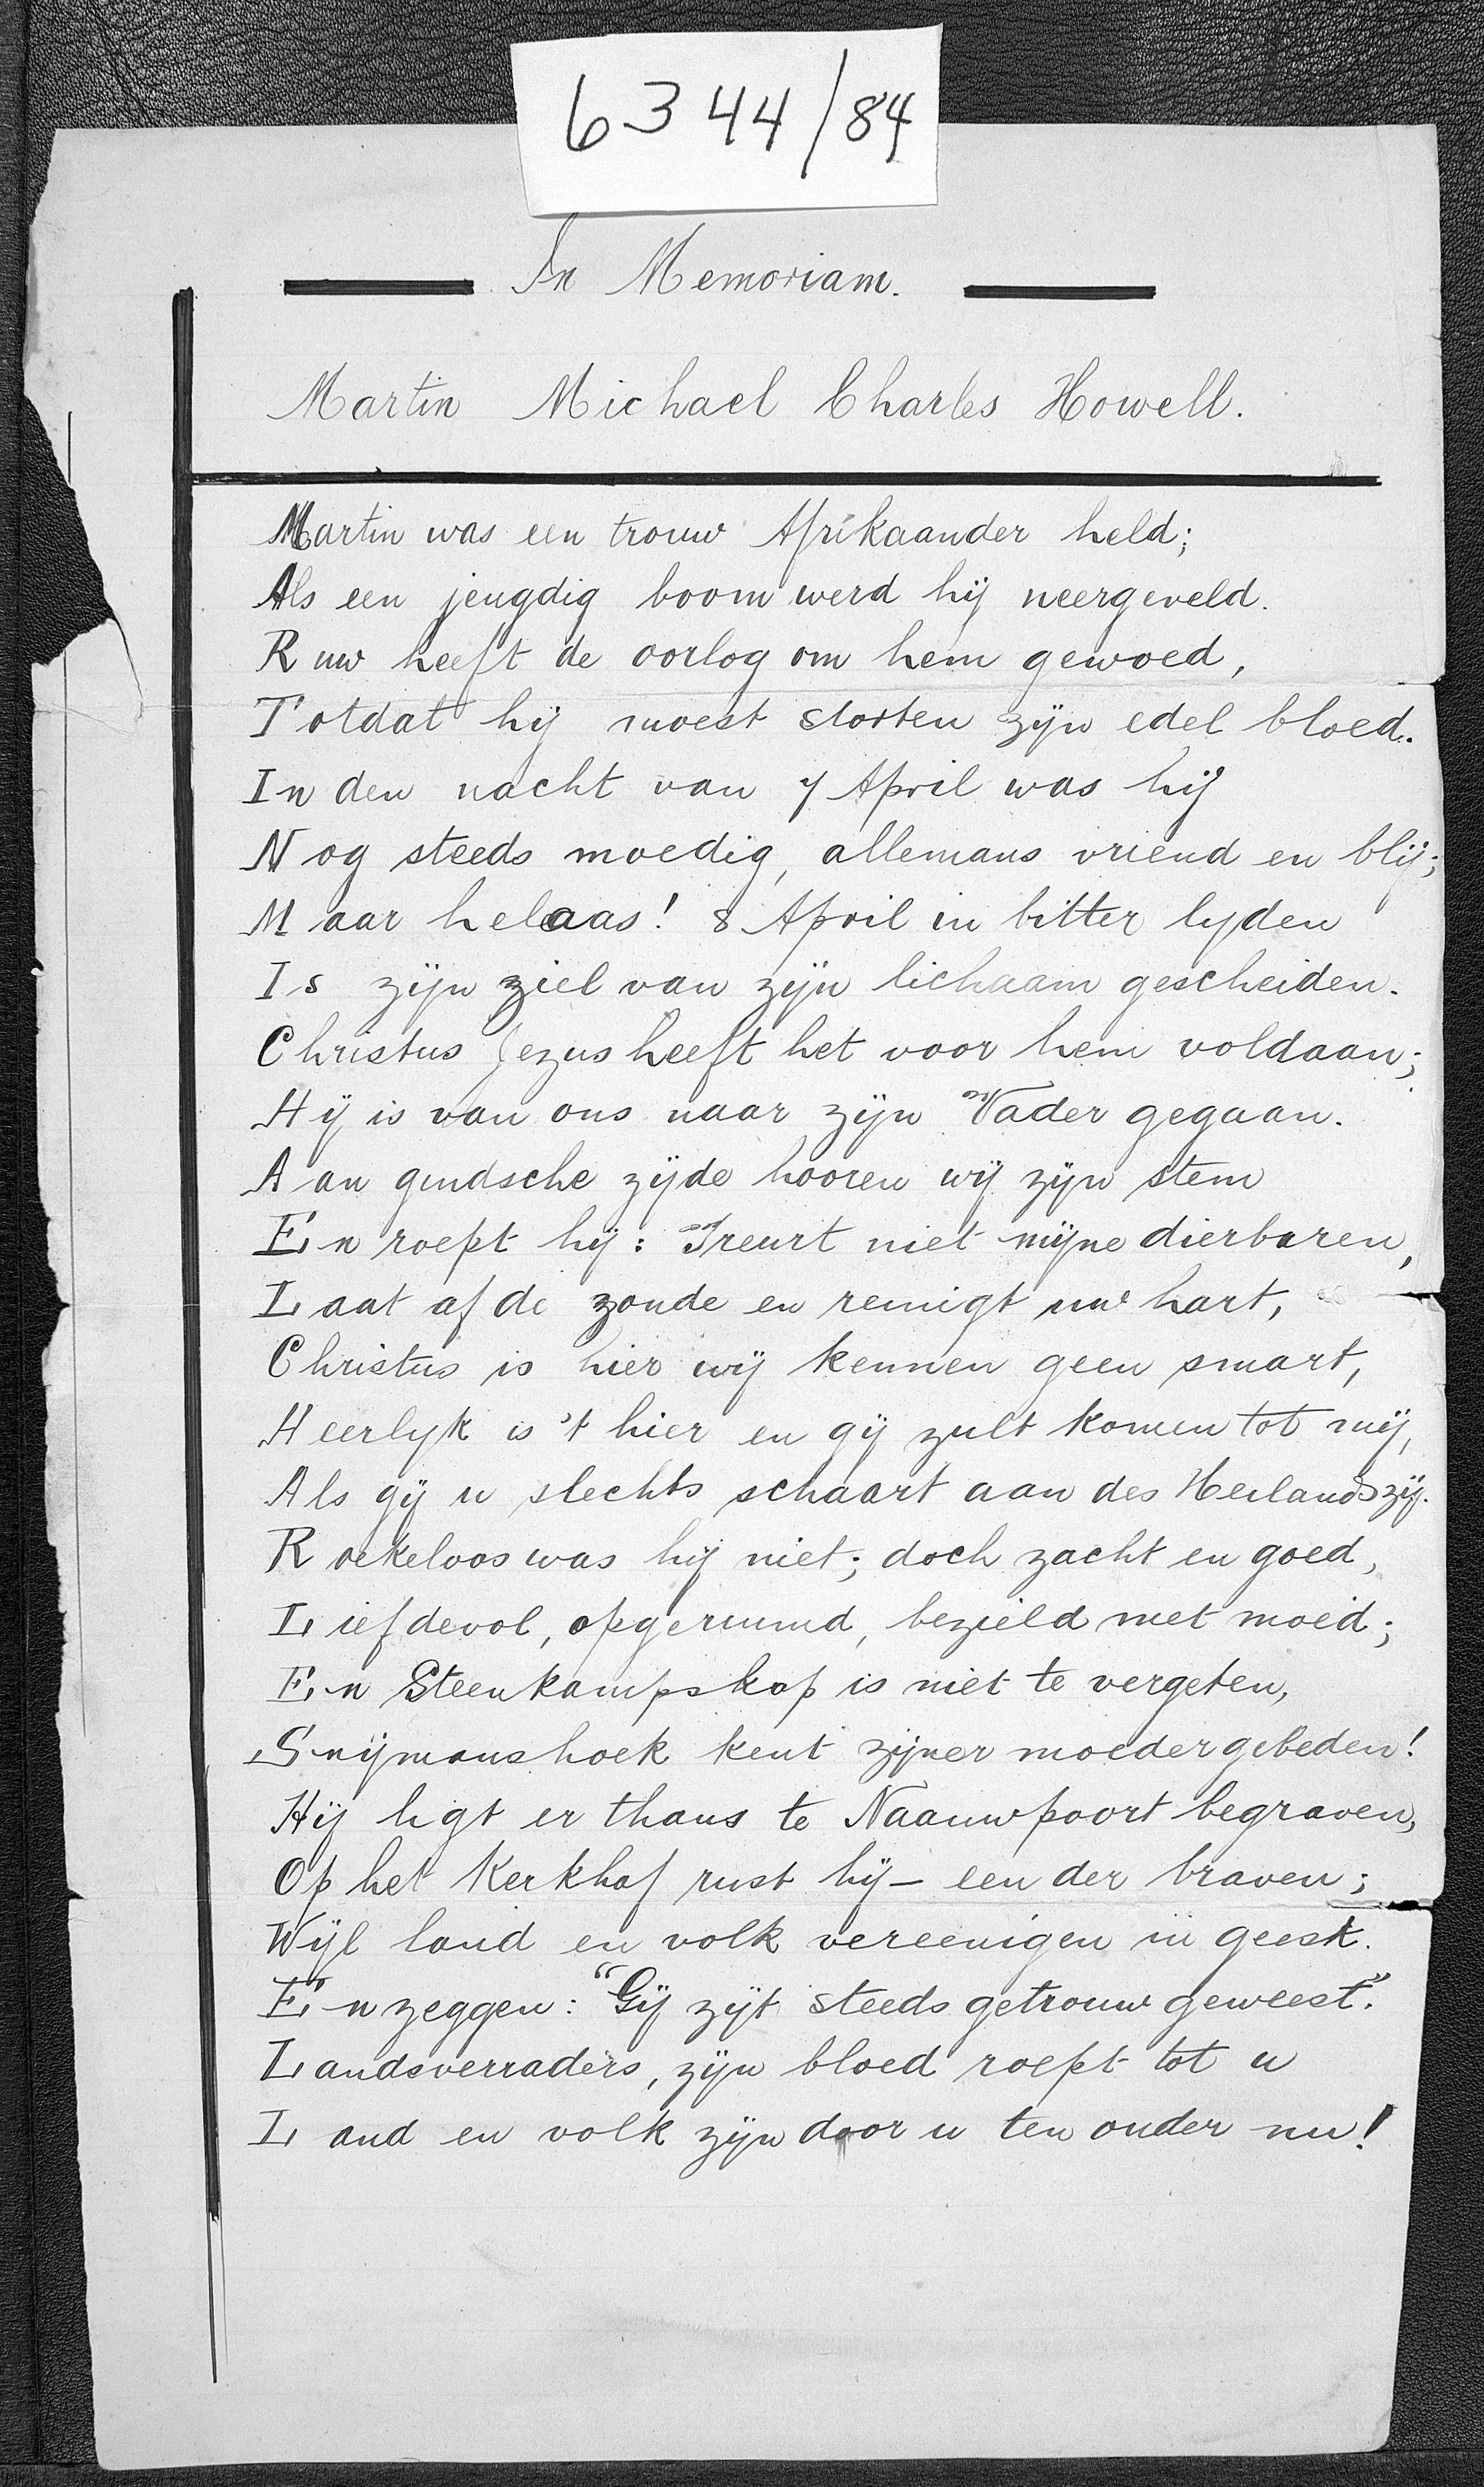 6344/84
In Memoriam.
Martin Michael Charles Howell.
Martin was een trouw Afrikaander held;
Als een jeugdig boom werd hij neergeveld.
Ruw heeft de oorlog om hem gewoed,
Totdat hij moest storten zijn edel bloed.
In den nacht van 7 April was hij
Nog steeds moedig, allemans vriend en blij;
Maar helaas! 8 April in bitter lyden
Is zijn ziel van zijn lichaam gescheiden.
Christus Jezus heeft het voor hem voldaan;
Hij is van ons naar zijn Vader gegaan.
Aan gindsche zijde hooren wij zijn stem
En roept hij: Treurt niet mijne dierbaren,
Laat af de zonde en reinigt uw hart,
Christus is hier wij kennen geen smart,
Heerlyk is 't hier en gij zult komen tot mij,
Als gij u slechts schaart aan des Heilands zij.
Roekeloos was hij niet; doch zacht en goed,
Liefdevol, opgeruimd, bezield met moed;
En Steenkampskop is niet te vergeten,
Snijmanshoek kent zijner moeder gebeden!
Hij ligt er thans te Naauwpoort begraven,
Op het Kerkhof rust hij - een der braven;
Wijl land en volk vereenigen in geest.
En zeggen: "Gij zijt steeds getrouw geweest".
Landsverraders, zijn bloed roept tot u
Land en volk zijn door u ten onder nu!